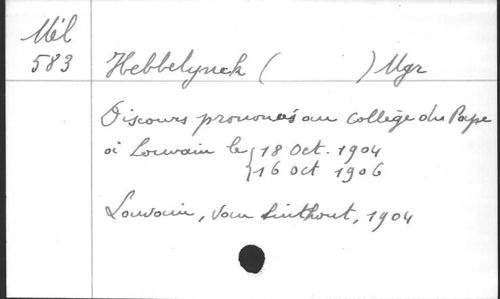 Mél
583
Hebbelynck ( ) Mgr
Discours prononcés au collège du Pape
à Louvain le { 18 Oct. 1904
16 Oct 1906
Louvain, Van Linthout, 1904